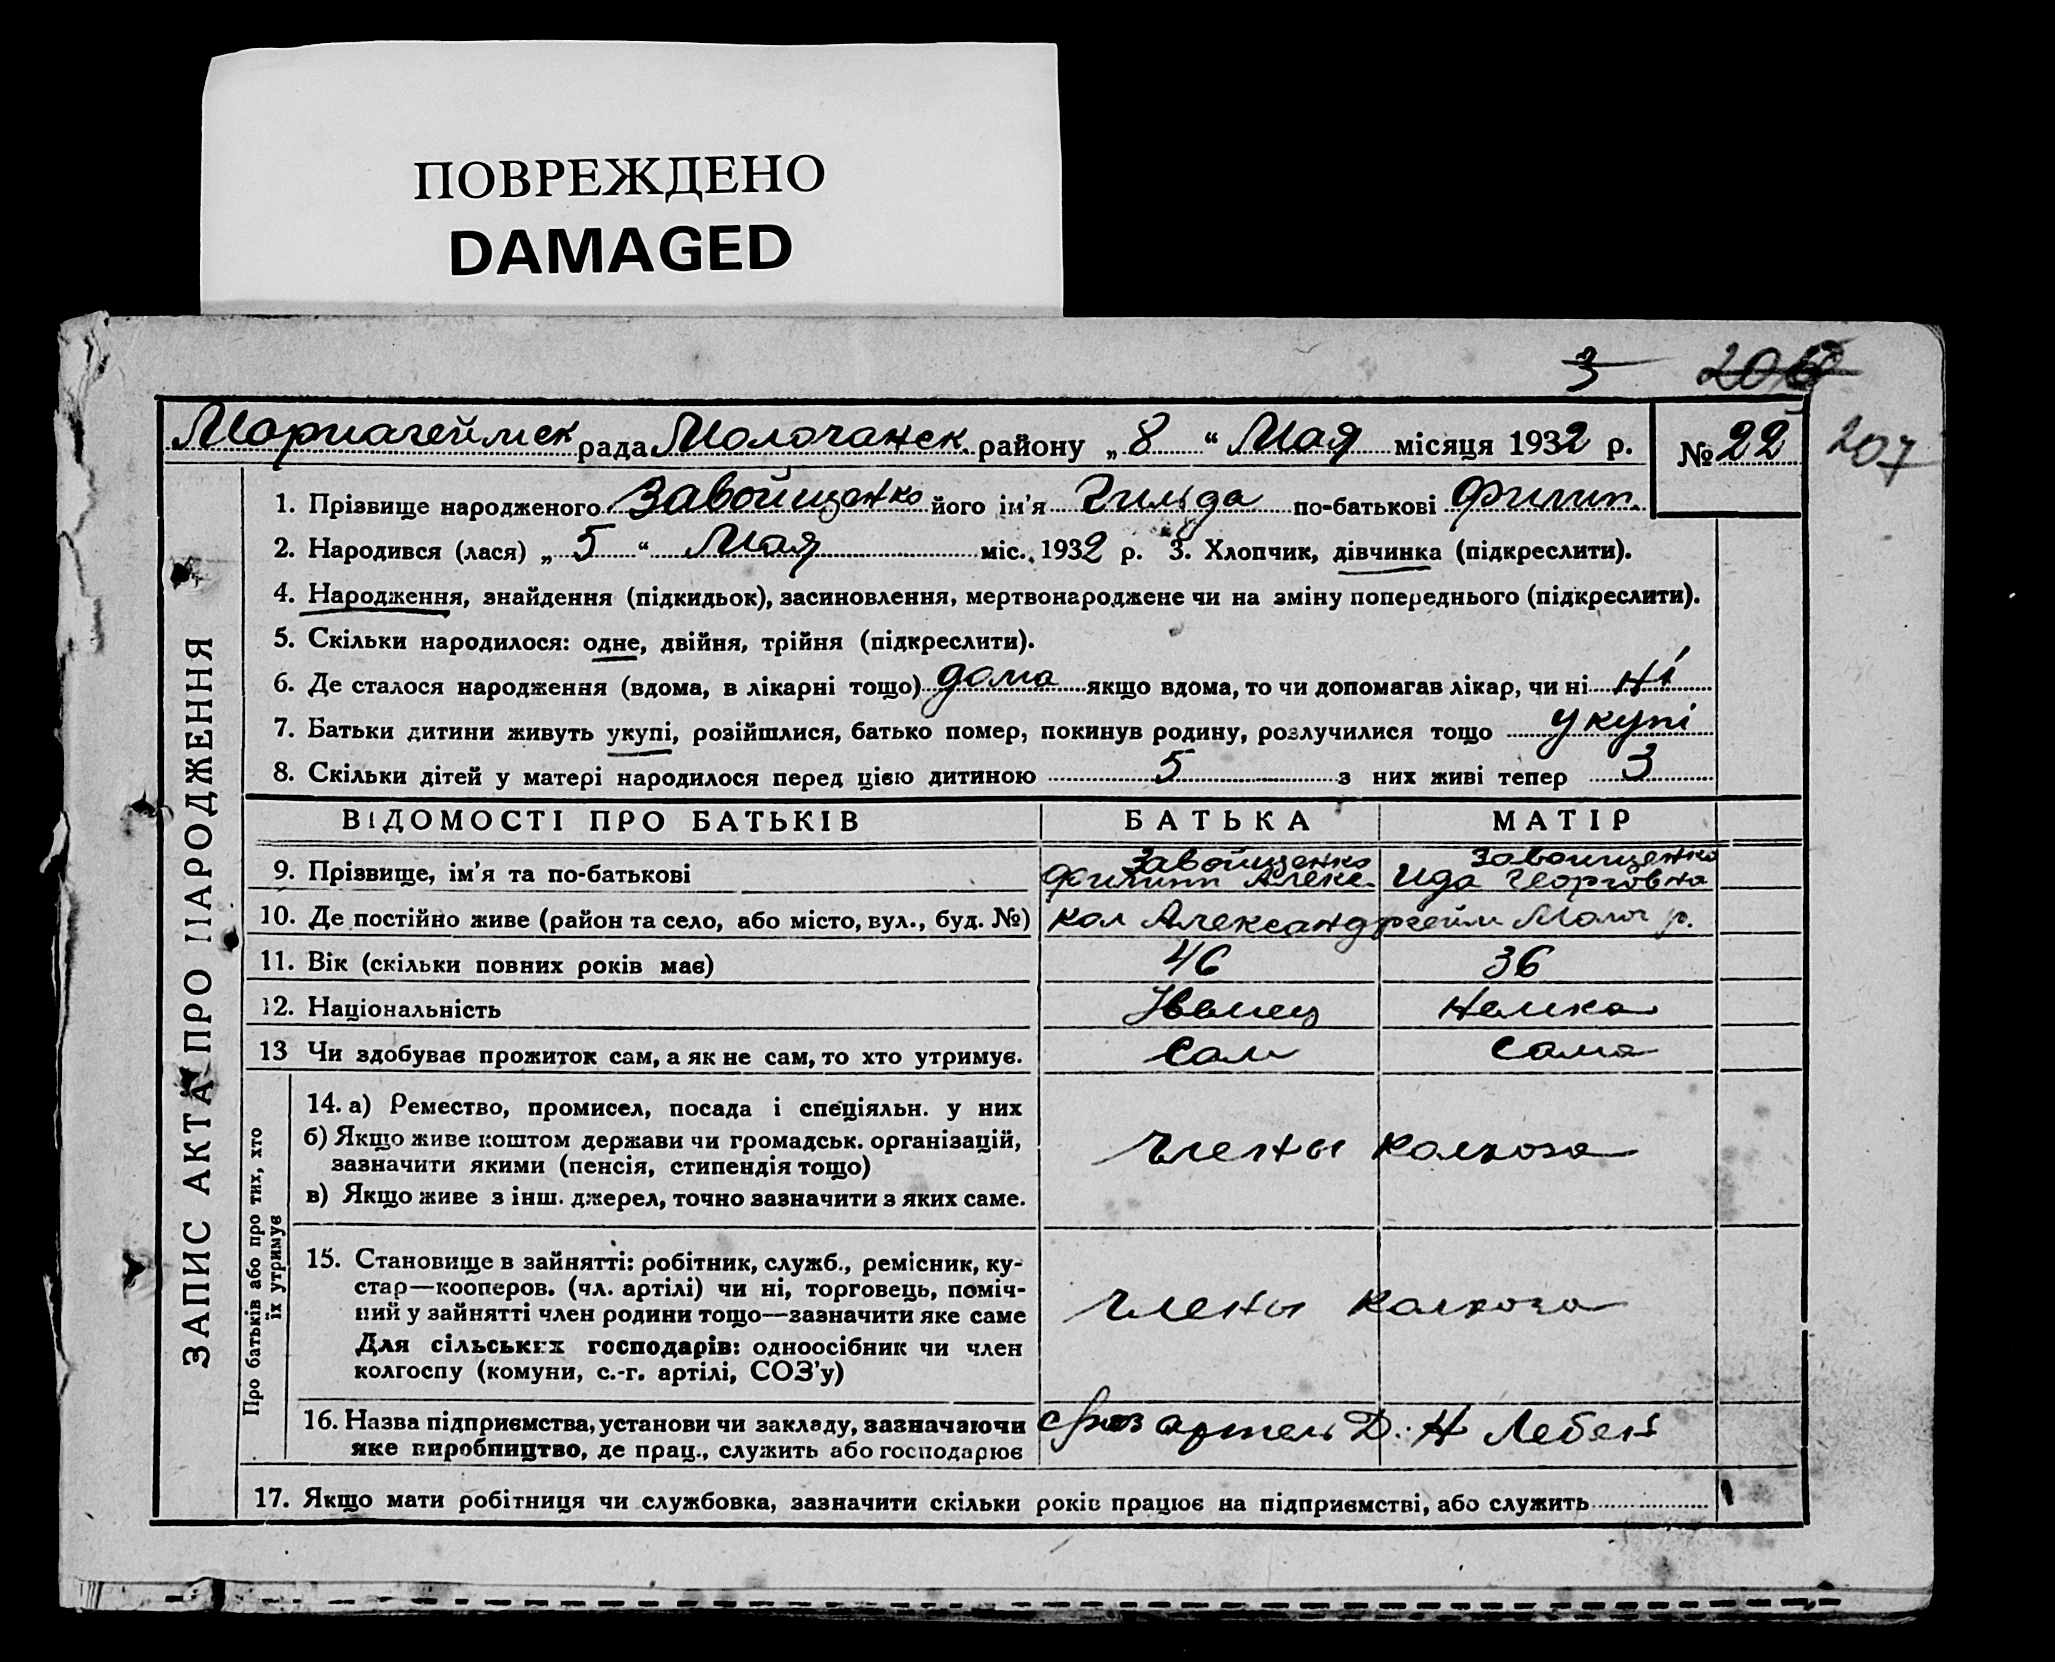 ПОВРЕЖДЕНО
DAMAGED
3 206
Мариагеймск рада Молочанск. району „ 8 “ Мая місяця 1932 р. № 22 207
1. Прізвище народженого Завойщенко його ім’я Гильда по-батькові Филип.
2. Народився (лася) „ 5 “ Мая міс. 1932 р. 3. Хлопчик, дівчинка (підкреслити).
4. Народження, знайдення (підкидьок), засиновлення, мертвонароджене чи на зміну попереднього (підкреслити).
5. Скільки народилося: одне, двійня, трійня (підкреслити).
6. Де сталося народження (вдома, в лікарні тощо) дома якщо вдома, то чи допомагав лікар, чи ні ні
7. Батьки дитини живуть укупі, розійшлися, батько помер, покинув родину, розлучилися тощо укупі
8. Скільки дітей у матері народилося перед цією дитиною 5 з них живі тепер 3
ЗАПИС АКТА ПРО НАРОДЖЕННЯ
ВІДОМОСТІ ПРО БАТЬКІВ БАТЬКА МАТІР
Завойщенко Завоищенко
9. Прізвище, ім’я та по-батькові Филипп Алекс. Ида Георговна
10. Де постійно живе (район та село, або місто, вул., буд. №) кол Александргейм Молоч р.
11. Вік (скільки повних років має) 46 36
12. Національність немка
13 Чи здобуває прожиток сам, а як не сам, то хто утримує. Сам Сама
Про батьків або про тих, хто
їх утримує
14. а) Ремество, промисел, посада і спеціяльн. у них
б) Якщо живе коштом держави чи громадськ. організацій,
зазначити якими (пенсія, стипендія тощо)
члены колхоза
в) Якщо живе з інш. джерел, точно зазначити з яких саме.
15. Становище в зайнятті: робітник, служб., ремісник, ку-
стар—кооперов. (чл. артілі) чи ні, торговець, поміч-
ний у зайнятті член родини тощо—зазначити яке саме
члены колхоза
Для сільських господарів: одноосібник чи член
колгоспу (комуни, с.-г. артілі, СОЗ’у)
16. Назва підприємства, установи чи закладу, зазначаючи артель Д. Н Лебен
яке виробництво, де прац., служить або господарює
17. Якщо мати робітниця чи службовка, зазначити скільки років працює на підприємстві, або служить